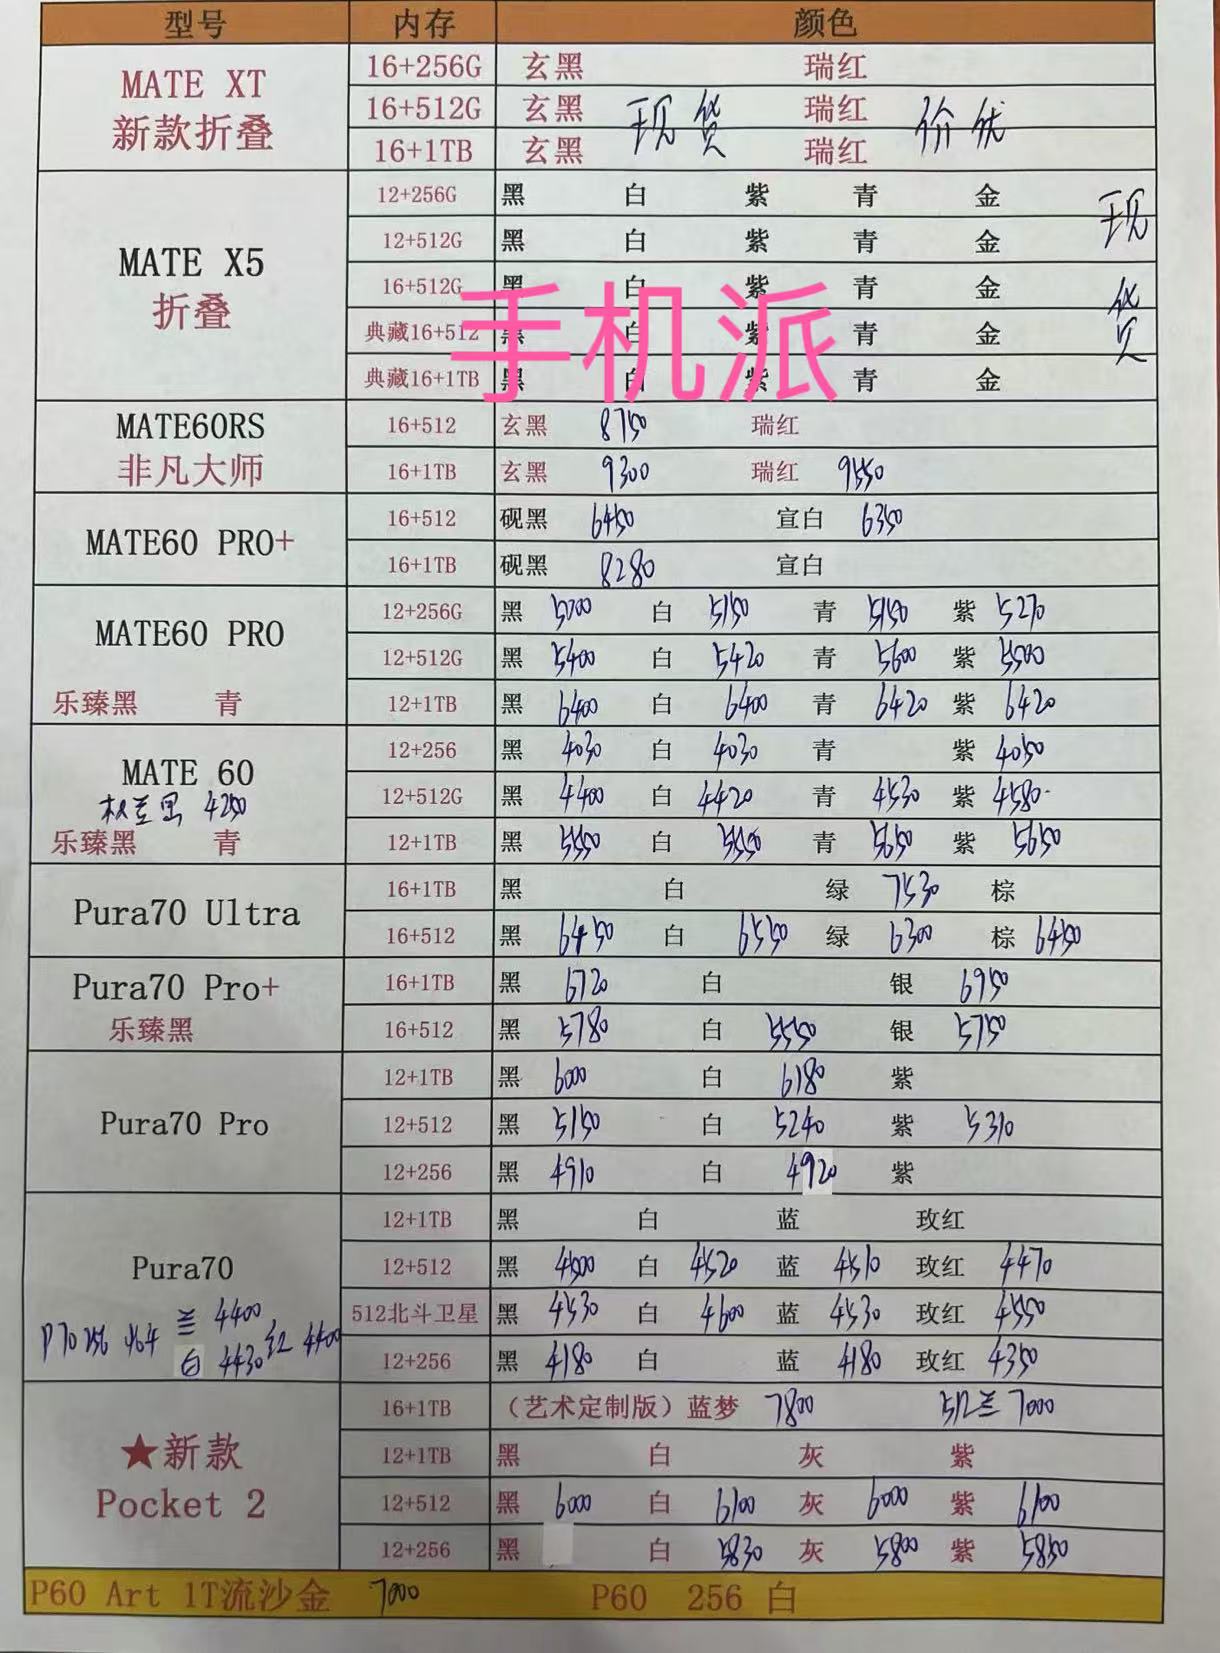 型号 内存 颜色
MATE XT 新款折叠
16+256G 玄黑 瑞红
16+512G 玄黑 现货 瑞红 价优
16+1TB 玄黑 瑞红
MATE X5 折叠 现货
12+256G 黑 白 紫 青 金
12+512G 黑 白 紫 青 金
16+512G 黑 白 紫 青 金
典藏16+512 黑 白 紫 青 金
典藏16+1TB 黑 白 紫 青 金
手机派
MATE60RS 非凡大师
16+512 玄黑 8750 瑞红
16+1TB 玄黑 9300 瑞红 9550
MATE60 PRO+
16+512 砚黑 6450 宣白 6350
16+1TB 砚黑 8280 宣白
MATE60 PRO
乐臻黑 青
12+256G 黑 5200 白 5150 青 5150 紫 5270
12+512G 黑 5400 白 5420 青 5600 紫 5500
12+1TB 黑 6400 白 6400 青 6420 紫 6420
MATE 60
4250
乐臻黑 青
12+256 黑 4030 白 4030 青 紫 4050
12+512G 黑 4400 白 4420 青 4530 紫 4580
12+1TB 黑 5550 白 5550 青 5650 紫 5650
Pura70 Ultra
16+1TB 黑 白 绿 7530 棕
16+512 黑 6450 白 6550 绿 6300 棕 6450
Pura70 Pro+
乐臻黑
16+1TB 黑 6720 白 银 6950
16+512 黑 5780 白 5550 银 5750
Pura70 Pro
12+1TB 黑 6000 白 6180 紫
12+512 黑 5150 白 5240 紫 5310
12+256 黑 4910 白 4920 紫
Pura70
P70 256 兰 4400
白 4430 红 4400
12+1TB 黑 白 蓝 玫红
12+512 黑 4500 白 4520 蓝 4510 玫红 4470
512北斗卫星 黑 4530 白 4600 蓝 4530 玫红 4550
12+256 黑 4180 白 蓝 4180 玫红 4350
★新款
Pocket 2
16+1TB （艺术定制版）蓝梦 7800 512兰 7000
12+1TB 黑 白 灰 紫
12+512 黑 6000 白 6100 灰 6000 紫 6100
12+256 黑 白 5830 灰 5800 紫 5850
P60 Art 1T流沙金 7000 P60 256 白